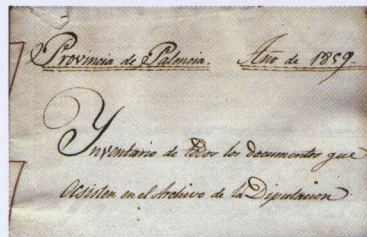 Provincia de Palencia. Año de 1859.
Ynventario de todos los documentos que
ecsisten en el Archivo de la Diputacion